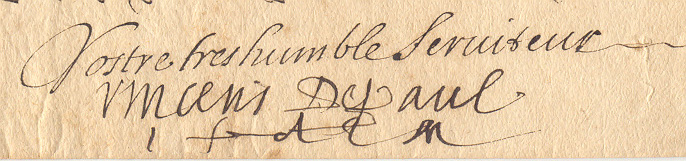 Vostre treshumble Seruiteur
Vincent Depaul
i p d l M